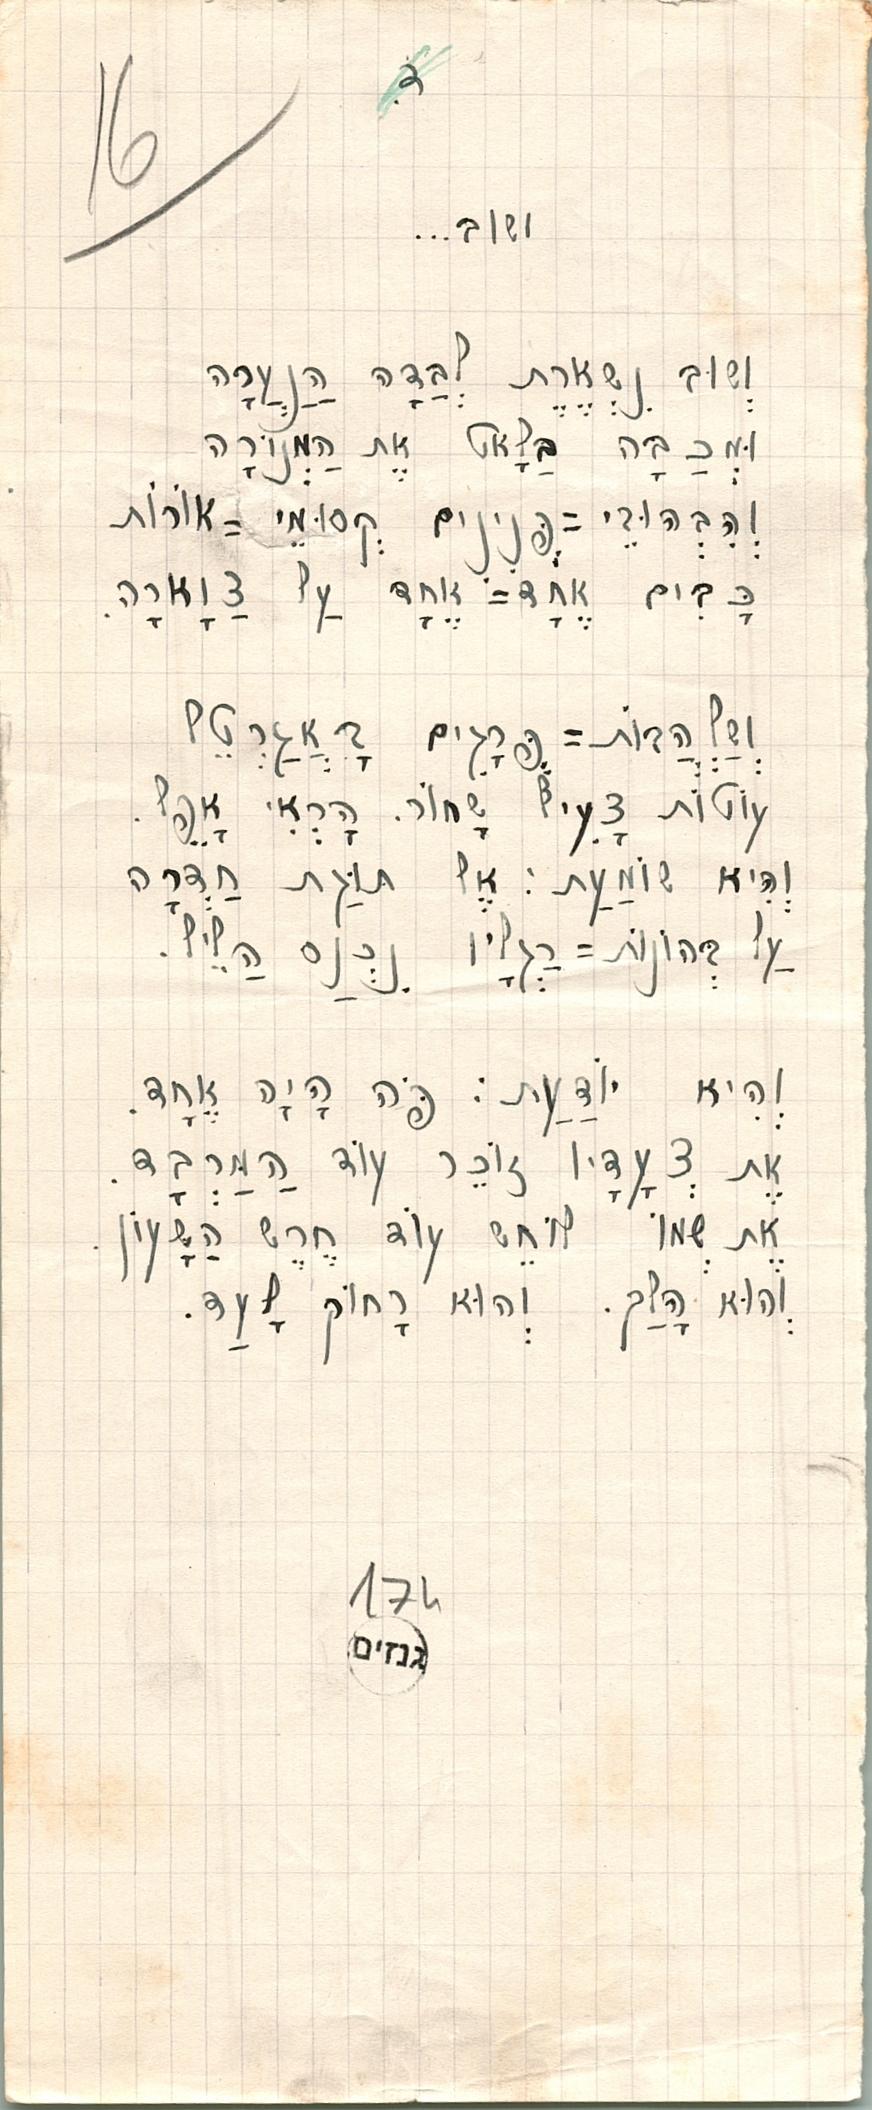 16
ד.
ושוב...
וְשׁוּב נִשְׁאֶרֶת לְבַדָּהּ הַנַּעֲרָה
וּמְכַבָּה בַּלָּאט אֶת הַמְּנוֹרָה
וְהִבְהוּבֵי=פְּנִינִים קְסוּמֵי=אוֹרוֹת
כָּבִים אֶחָד=אֶחָד עַל צַוָּארָהּ.
וְשַׁלְהֲבוֹת=פְּרָגִים בָּאֲגַרְטֵל
עוֹטוֹת צָעִיף שָׁחוֹר. הָרְאִי אָפֵל.
וְהִיא שׁוֹמַעַת: אֶל תּוּגַת חַדְרָהּ
עַל בְּהוֹנוֹת=רַגְלָיו נִכְנַס הַלֵּיל.
וְהִיא יוֹדַעַת: פֹּה הָיָה אֶחָד.
אֶת צְעָדָיו זוֹכֵר עוֹד הַמַּרְבָד.
אֶת שְׁמוֹ לוֹחֵשׁ עוֹד חֶרֶשׁ הַשָּׁעוֹן.
וְהוּא הָלַךְ. וְהוּא רָחוֹק לָעַד.
174
גנזים